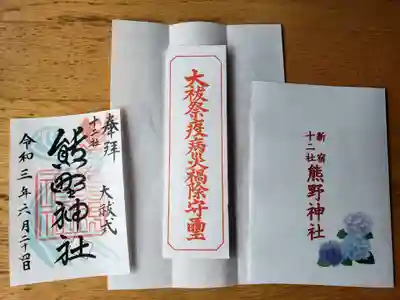 奉拝
大祓式
十二社
熊野神社
令和三年六月二十四日
大祓祭疫病災禍除守璽
新宿
十二社
熊野神社